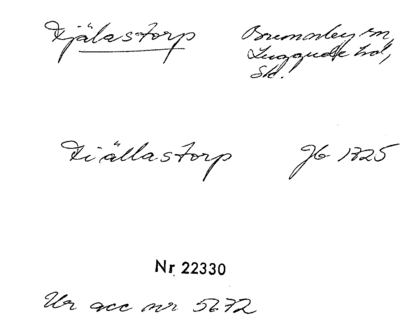 Tjälastorp Brunnby sn,
Luggude hd,
Sk.
Tiällastorp Jb 1725
Nr 22330
Ur acc nr 5672